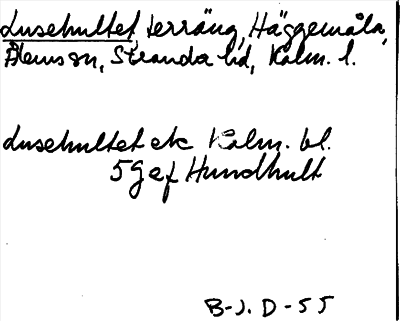 Lusehultet, terräng, Häggemåla,
Ålems sn, Stranda hd, Kalm. l.
Lusehultet ek Kalm. bl.
5g af Hundhult
B-J. D-55